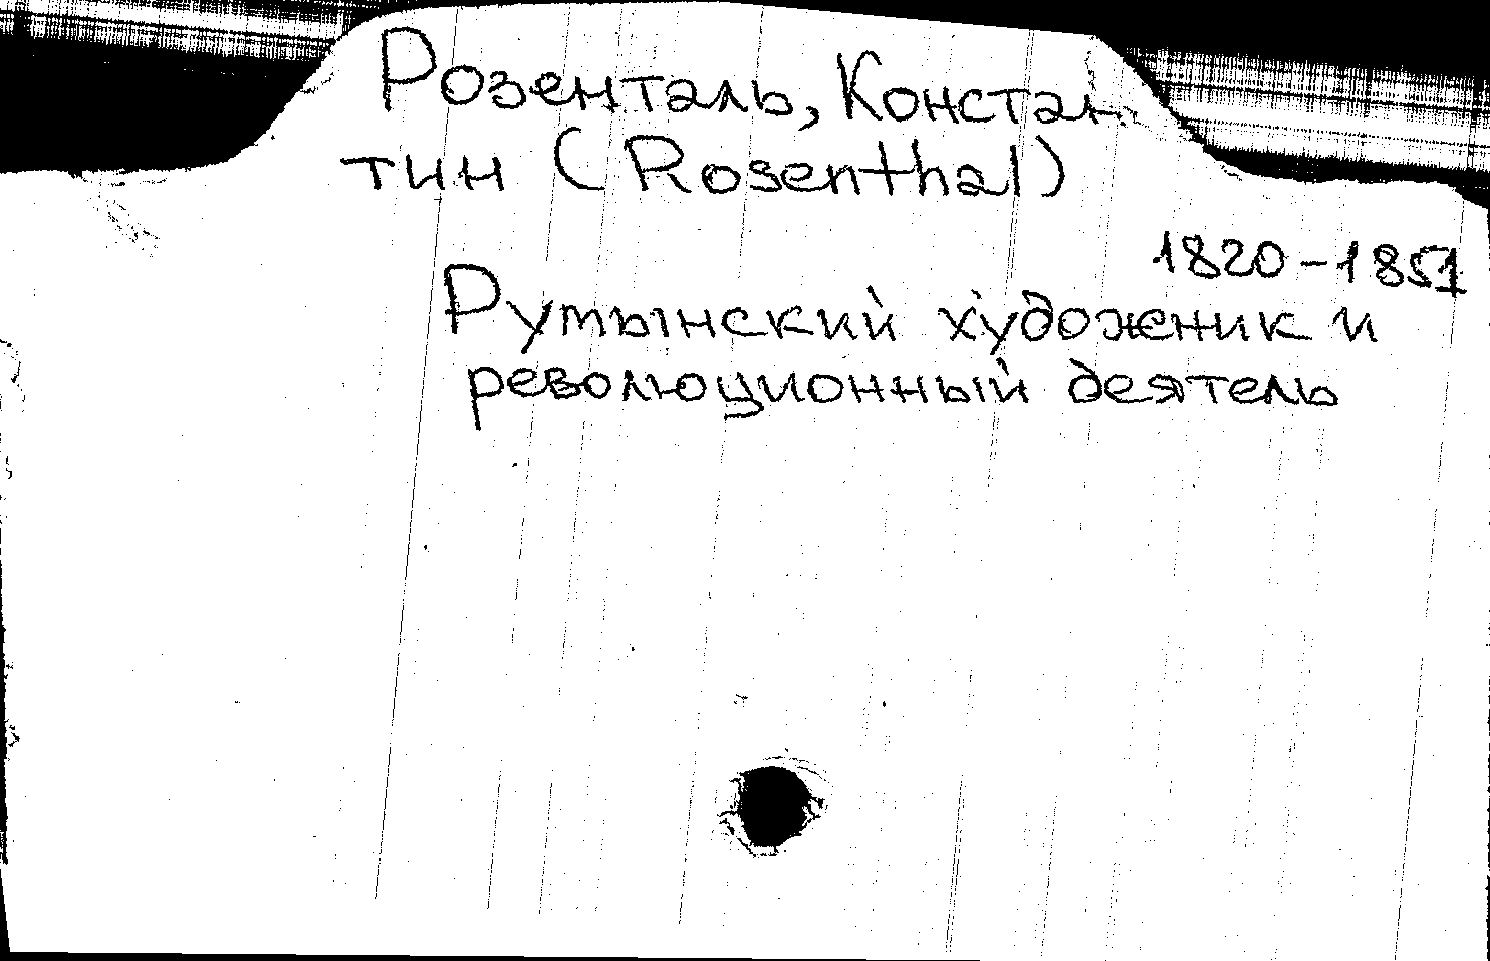 Розенталь, Констан
тин (Rosenthal)
1820-1851
Румынский художник и
революционный деятель